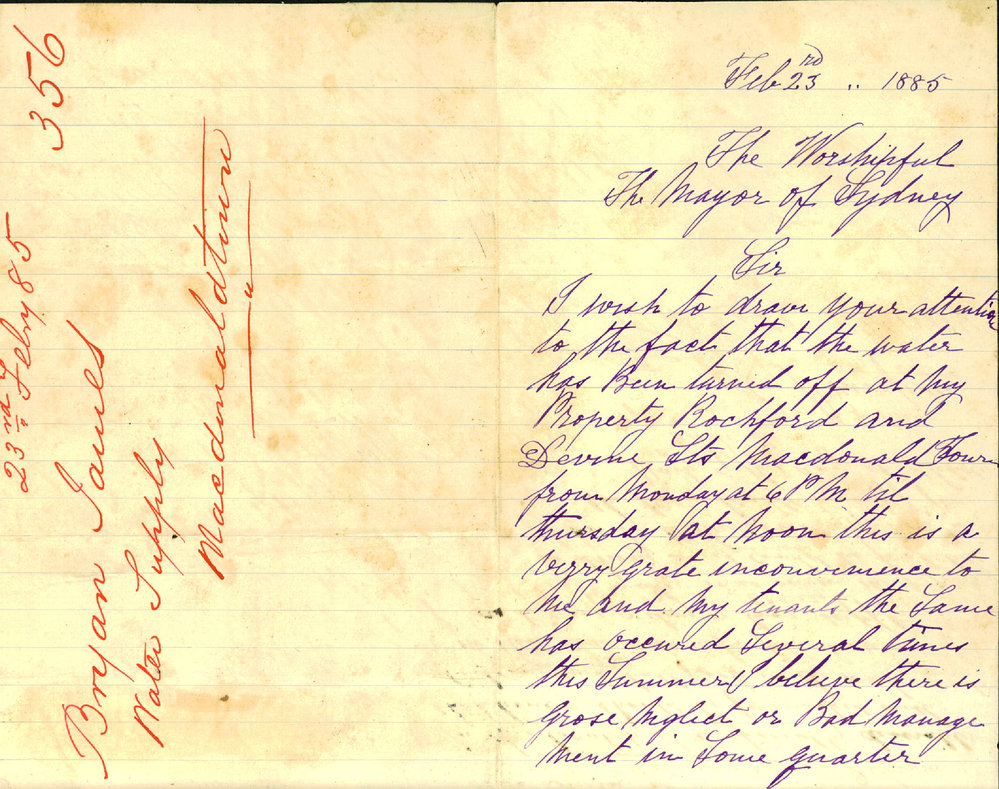 356
23rd Febry 85
Bryan James
Water Supply
Macdonaldtown
Feb 23rd .. 1885
The Worshipful
The Mayor of Sydney
Sir
I wish to draw your attention
to the fact that the water
has Been turned off at my
Property Rochford and
Devine Sts Macdonald Town
from Monday at 6 PM til
thursday at Noon this is a
verry grate inconvinence to
me and my tenants the Same
has occured Several times
this Summer I believe there is
grose Neglect or Bad Manage
ment in Some quarter